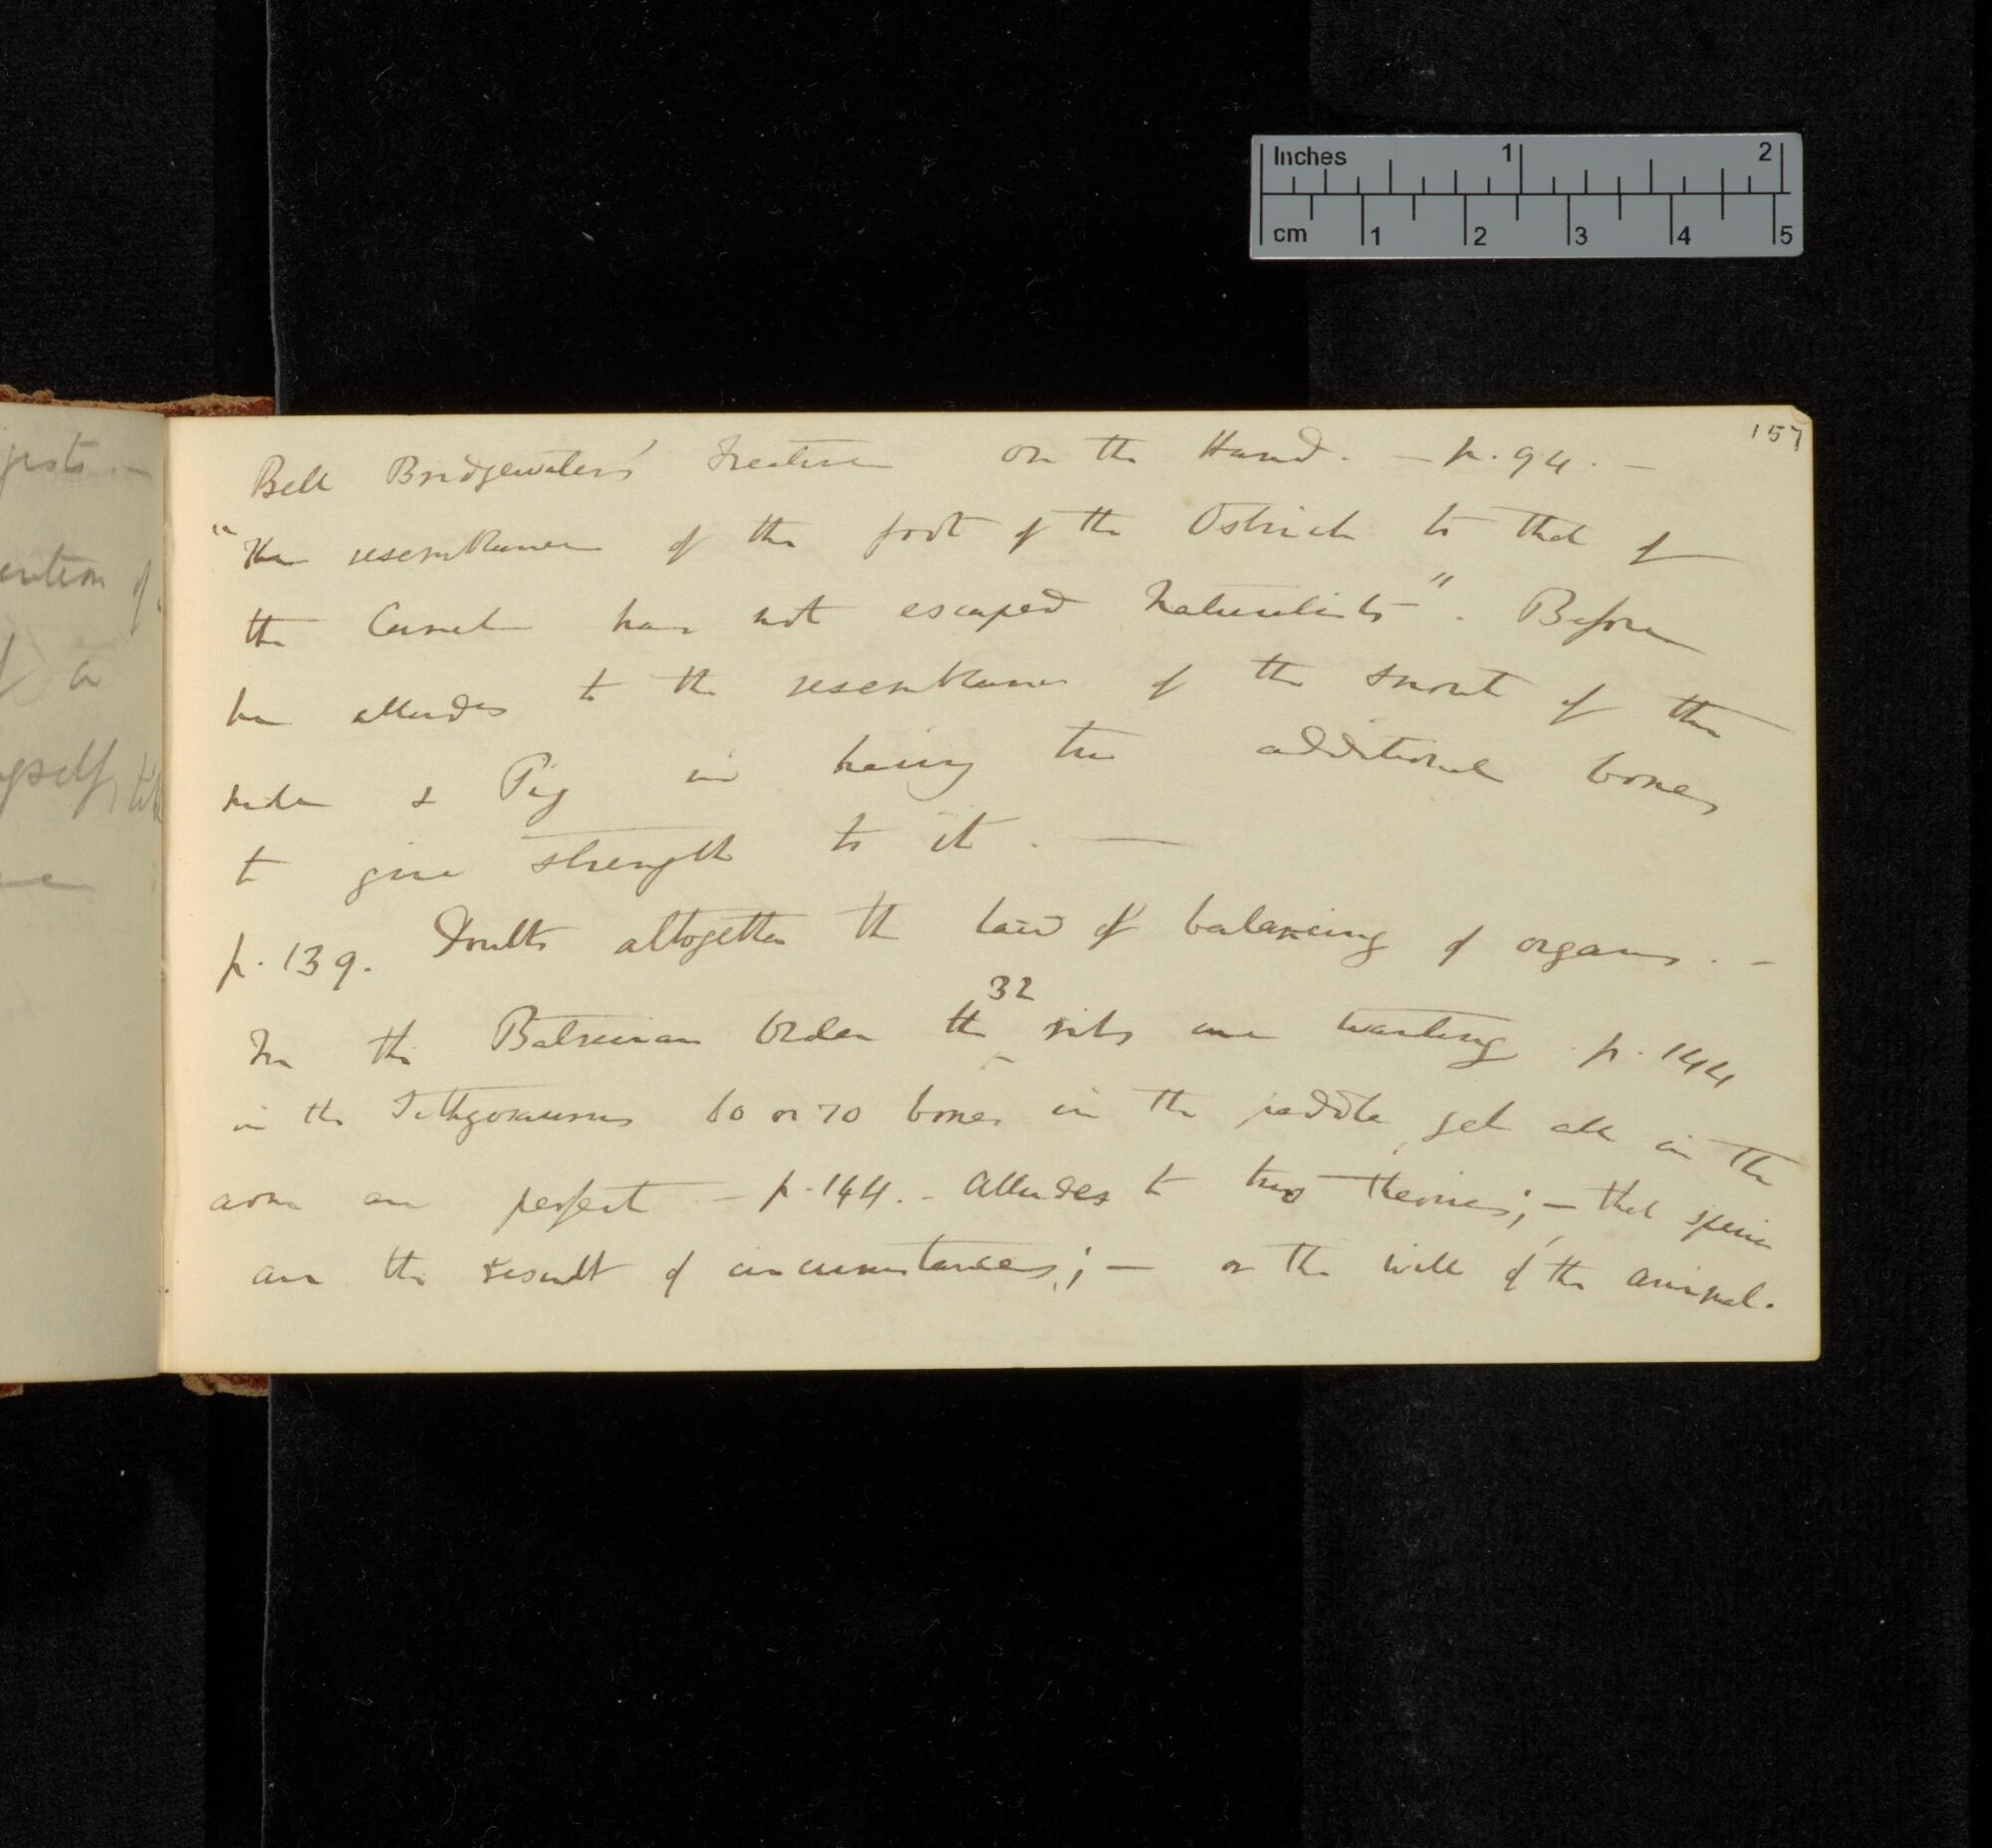 jects. —
of a
myself, till
157
Bell Bridgewaters' Treatise on the Hand. — p. 94. —
"The resemblance of the foot of the Ostrich to that of
the Camel has not escaped naturalists". Before
he alludes to the resemblance of the snout of the
mole & Pig in having two additional bones
to give strength to it. —
p. 139. Doubts altogether the law of balancing of organs. —
In the Batrician Order the 32 ribs are wanting p. 144
in the Icthyosaurus 60 or 70 bones in the paddle, yet all in the
arm are perfect — p. 144. — Alludes to two theories; — that species
are the result of circumstances; — or the will of the animal.
Inches 1 2
cm 1 2 3 4 5